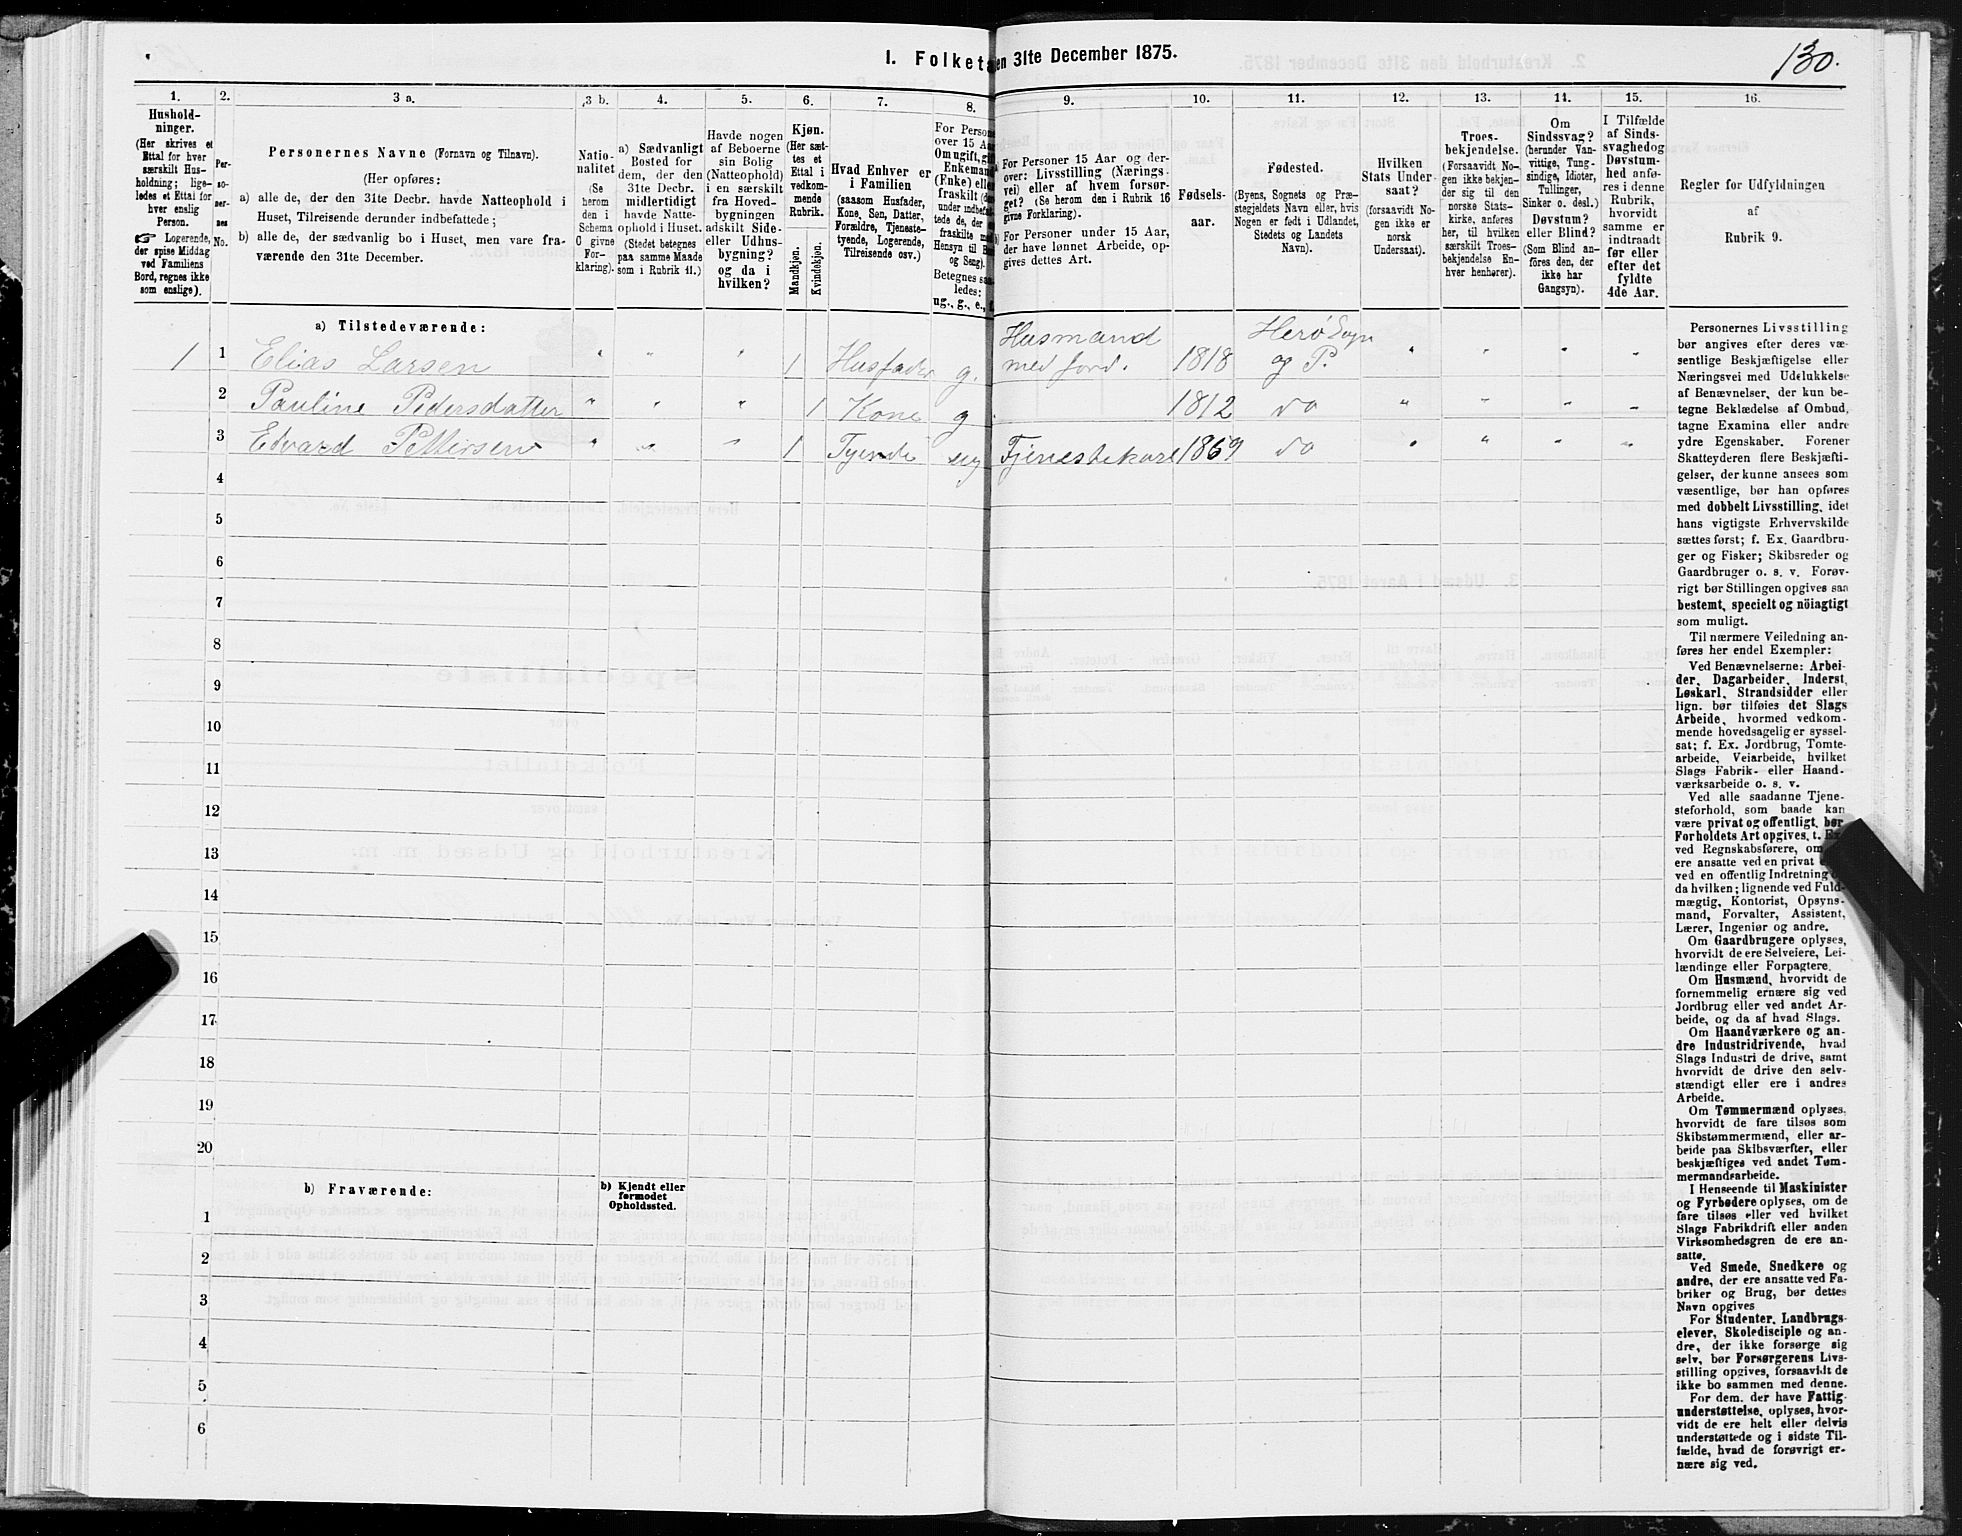 I. Folketa en 31te December 1875.
130.
1.
Hushold-
ninger.
(Her skrives et
Ettal for hver
særskilt Hus-
holdning; lige-
ledes et Ettal for
hver enslig
Person.
☞ Logerende,
der spise Middag
ved Familiens
Bord, regnes ikke
som enslige).
2.
Per-
so-
ner-
nes
No.
3 a.
Personernes Navne (Fornavn og Tilnavn).
(Her opføres:
a) alle de, der den 31te Decbr. havde Natteophold i
Huset, Tilreisende derunder indbefattede;
b) alle de, der sædvanlig bo i Huset, men vare fra-
værende den 31te December.
3 b.
Natio-
nalitet
(Se
herom
den i
Schema
C givne
For-
klaring).
4.
a) Sædvanligt
Bosted for
dem, der den
31te Decbr.
midlertidigt
havde Natte-
ophold i Huset.
(Stedet betegnes
paa samme Maade
som i Rubrik 11.)
5.
Havde nogen
af Beboerne
sin Bolig
(Natteophold)
i en særskilt
fra Hoved-
bygningen
adskilt Side-
eller Udhus-
bygning?
og da i
hvilken?
6.
Kjøn.
(Her sæt-
tes et
Ettal i
vedkom-
mende
Rubrik.
Mandkjøn.
Kvindekjøn.
7.
Hvad Enhver er
i Familien
(saasom Husfader,
Kone, Søn, Datter,
Forældre, Tjeneste-
tyende, Logerende,
Tilreisende osv.)
8.
For Persone
over 15 Aa
Om ugift, gif
Enkemand
(Enke) elle
fraskilt
under indbefat-
tede de, der
fraskilte m
Hensyn til B
og Seng).
Betegnes saa
ledes:
ug., g., e., f.
9.
For Personer 15 Aar og der-
over: Livsstilling (Nærings-
vei) eller af hvem forsør-
get? (Se herom den i Rubrik 16
givne Forklaring).
For Personer under 15 Aar,
der have lønnet Arbeide, op-
gives dettes Art.
10.
Fødsels-
aar.
11.
Fødested.
(Byens, Sognets og Præ-
stegjeldets Navn eller, hvis
Nogen er født i Udlandet,
Stedets og Landets
Navn).
12.
Hvilken
Stats Under-
saat?
(forsaavidt No-
gen ikke er
norsk
Undersaat).
13.
Troes-
bekjendelse.
(Forsaavidt No-
gen ikke bekjen-
der sig til den
norske Stats-
kirke, anføres
her, til hvilken
særskilt Troes-
bekjendelse En-
hver henhører).
14.
Om
Sindssvag?
(herunder Van-
vittige, Tung-
sindige, Idioter,
Tullinger,
Sinker o. desl.)
Døvstum?
eller Blind?
(Som Blind an-
føres den, der
ikke har
Gangsyn).
15.
I Tilfælde
af Sinds-
svaghed og
Døvstum-
hed anfø-
res i denne
Rubrik,
hvorvidt
samme er
indtraadt
før eller
efter det
fyldte
4de Aar.
16.
Regler for Udfyldningen
af
Rubrik 9.
a) Tilstedeværende:
1 1 Elias Larsen " " " 1 Husfader g. Husmand med Jord. 1818 Herø Sogn og P. " " " "
2 Pauline Pedersdatter " " " 1 Kone g 1812 do " " " "
3 Edvard Pettersen " " " 1 Tyende ug Tjenestekarl 1869 do " " " "
4
5
6
7
8
9
10
11
12
13
14
15
16
17
18
19
20
b) Fraværende:
b) Kjendt eller
formodet
Opholdssted.
1
2
3
4
5
6
Personernes Livsstilling
bør angives efter deres væ-
sentlige Beskjæftigelse eller
Næringsvei med Udelukkelse
af Benævnelser, der kun be-
tegne Beklædelse af Ombud,
tagne Examina eller andre
ydre Egenskaber. Forener
Skatteyderen flere Beskjæfti-
gelser, der kunne ansees som
væsentlige, bør han opføres
med dobbelt Livsstilling, idet
hans vigtigste Erhvervskilde
sættes først; f. Ex. Gaardbru-
ger og Fisker; Skibsreder og
Gaardbruger o. s. v. Forøv-
rigt bør Stillingen opgives saa
bestemt, specielt og nöiagtigt
som muligt.
Til nærmere Veiledning an-
føres her endel Exempler:
Ved Benævnelserne: Arbei-
der, Dagarbeider, Inderst,
Løskarl, Strandsidder eller
lign. bør tilføies det Slags
Arbeide, hvormed vedkom-
mende hovedsagelig er syssel-
sat; f. Ex. Jordbrug, Tomte-
arbeide, Veiarbeide, hvilket
Slags Fabrik- eller Haand-
værksarbeide o. s. v.
Ved alle saadanne Tjene-
steforhold, som baade kan
være privat og offentligt, bør
Forholdets Art opgives, t. Ex.
ved Regnskabsførere, om
ere ansatte ved en privat
ved en offentlig Indretning
da hvilken; lignende ved Fuld-
mægtig, Kontorist, Opsyns-
mand, Forvalter, Assistent,
Lærer, Ingeniør og andre.
Om Gaardbrugere oplyses,
hvorvidt de ere Selveiere, Lei-
lændinge eller Forpagtere.
Om Husmænd, hvorvidt de
fornemmelig ernære sig ved
Jordbrug eller ved andet Ar-
beide, og da af hvad Slags.
Om Haandværkere og an-
dre Industridrivende, hvad
Slags Industri de drive, samt
hvorvidt de drive den selv-
stændigt eller ere i andres
Arbeide.
Om Tømmermænd oplyses,
hvorvidt de fare tilsøs som
Skibstømmermænd, eller ar-
beide paa Skibsværfter, eller
beskjæftiges ved andet Tøm-
mermandsarbeide.
I Henseende til Maskinister
og Fyrbødere oplyses, om de
fare tilsøs eller ved hvilket
Slags Fabrikdrift eller anden
Virksomhedsgren de ere an-
satte.
Ved Smede, Snedkere og
andre, der ere ansatte ved Fa-
briker og Brug, bør dettes
Navn opgives
For Studenter, Landbrugs-
elever, Skoledisciple og an-
dre, der ikke forsørge sig
selv, bør Forsørgerens Livs-
stilling opgives, forsaavidt de
ikke bo sammen med denne.
For dem, der have Fattig-
understøttelse, oplyses, hvor-
vidt de ere helt eller delvis
understøttede og i sidste Til-
fælde, hvad de forøvrigt er-
nære sig ved.